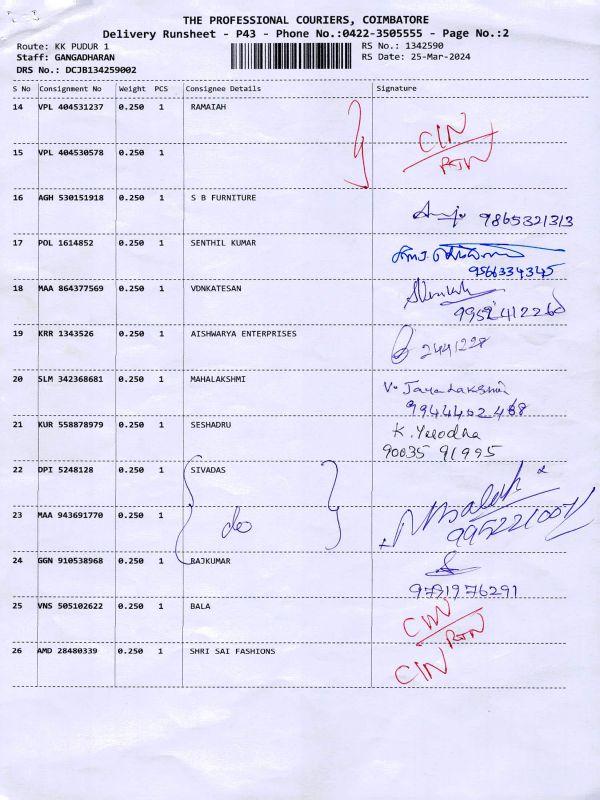 THE PROFESSIONAL COURIERS, COIMBATORE
Delivery Runsheet - P43 - Phone No.:0422-3505555 - Page No.:2
Route: KK PUDUR 1 RS No.: 1342590
Staff: GANGADHARAN RS Date: 25-Mar-2024
DRS No.: DCJB134259002
S No Consignment No Weight PCS Consignee Details Signature
14 VPL 404531237 0.250 1 RAMAIAH
CIN
RTN
15 VPL 404530578 0.250 1
16 AGH 530151918 0.250 1 S B FURNITURE
9865321313
17 POL 1614852 0.250 1 SENTHIL KUMAR
9566334345
18 MAA 864377569 0.250 1 VDNKATESAN
9952412260
19 KRR 1343526 0.250 1 AISHWARYA ENTERPRISES
2441228
20 SLM 342368681 0.250 1 MAHALAKSHMI
V. Jayalakshmi
21 KUR 558878979 0.250 1 SESHADRU
K. Yesodha
90035 91995
22 DPI 5248128 0.250 1 SIVADAS
23 MAA 943691770 0.250 1 do
24 GGN 910538968 0.250 1 RAJKUMAR
9791976291
25 VNS 505102622 0.250 1 BALA
RTN
26 AMD 28480339 0.250 1 SHRI SAI FASHIONS
CIN